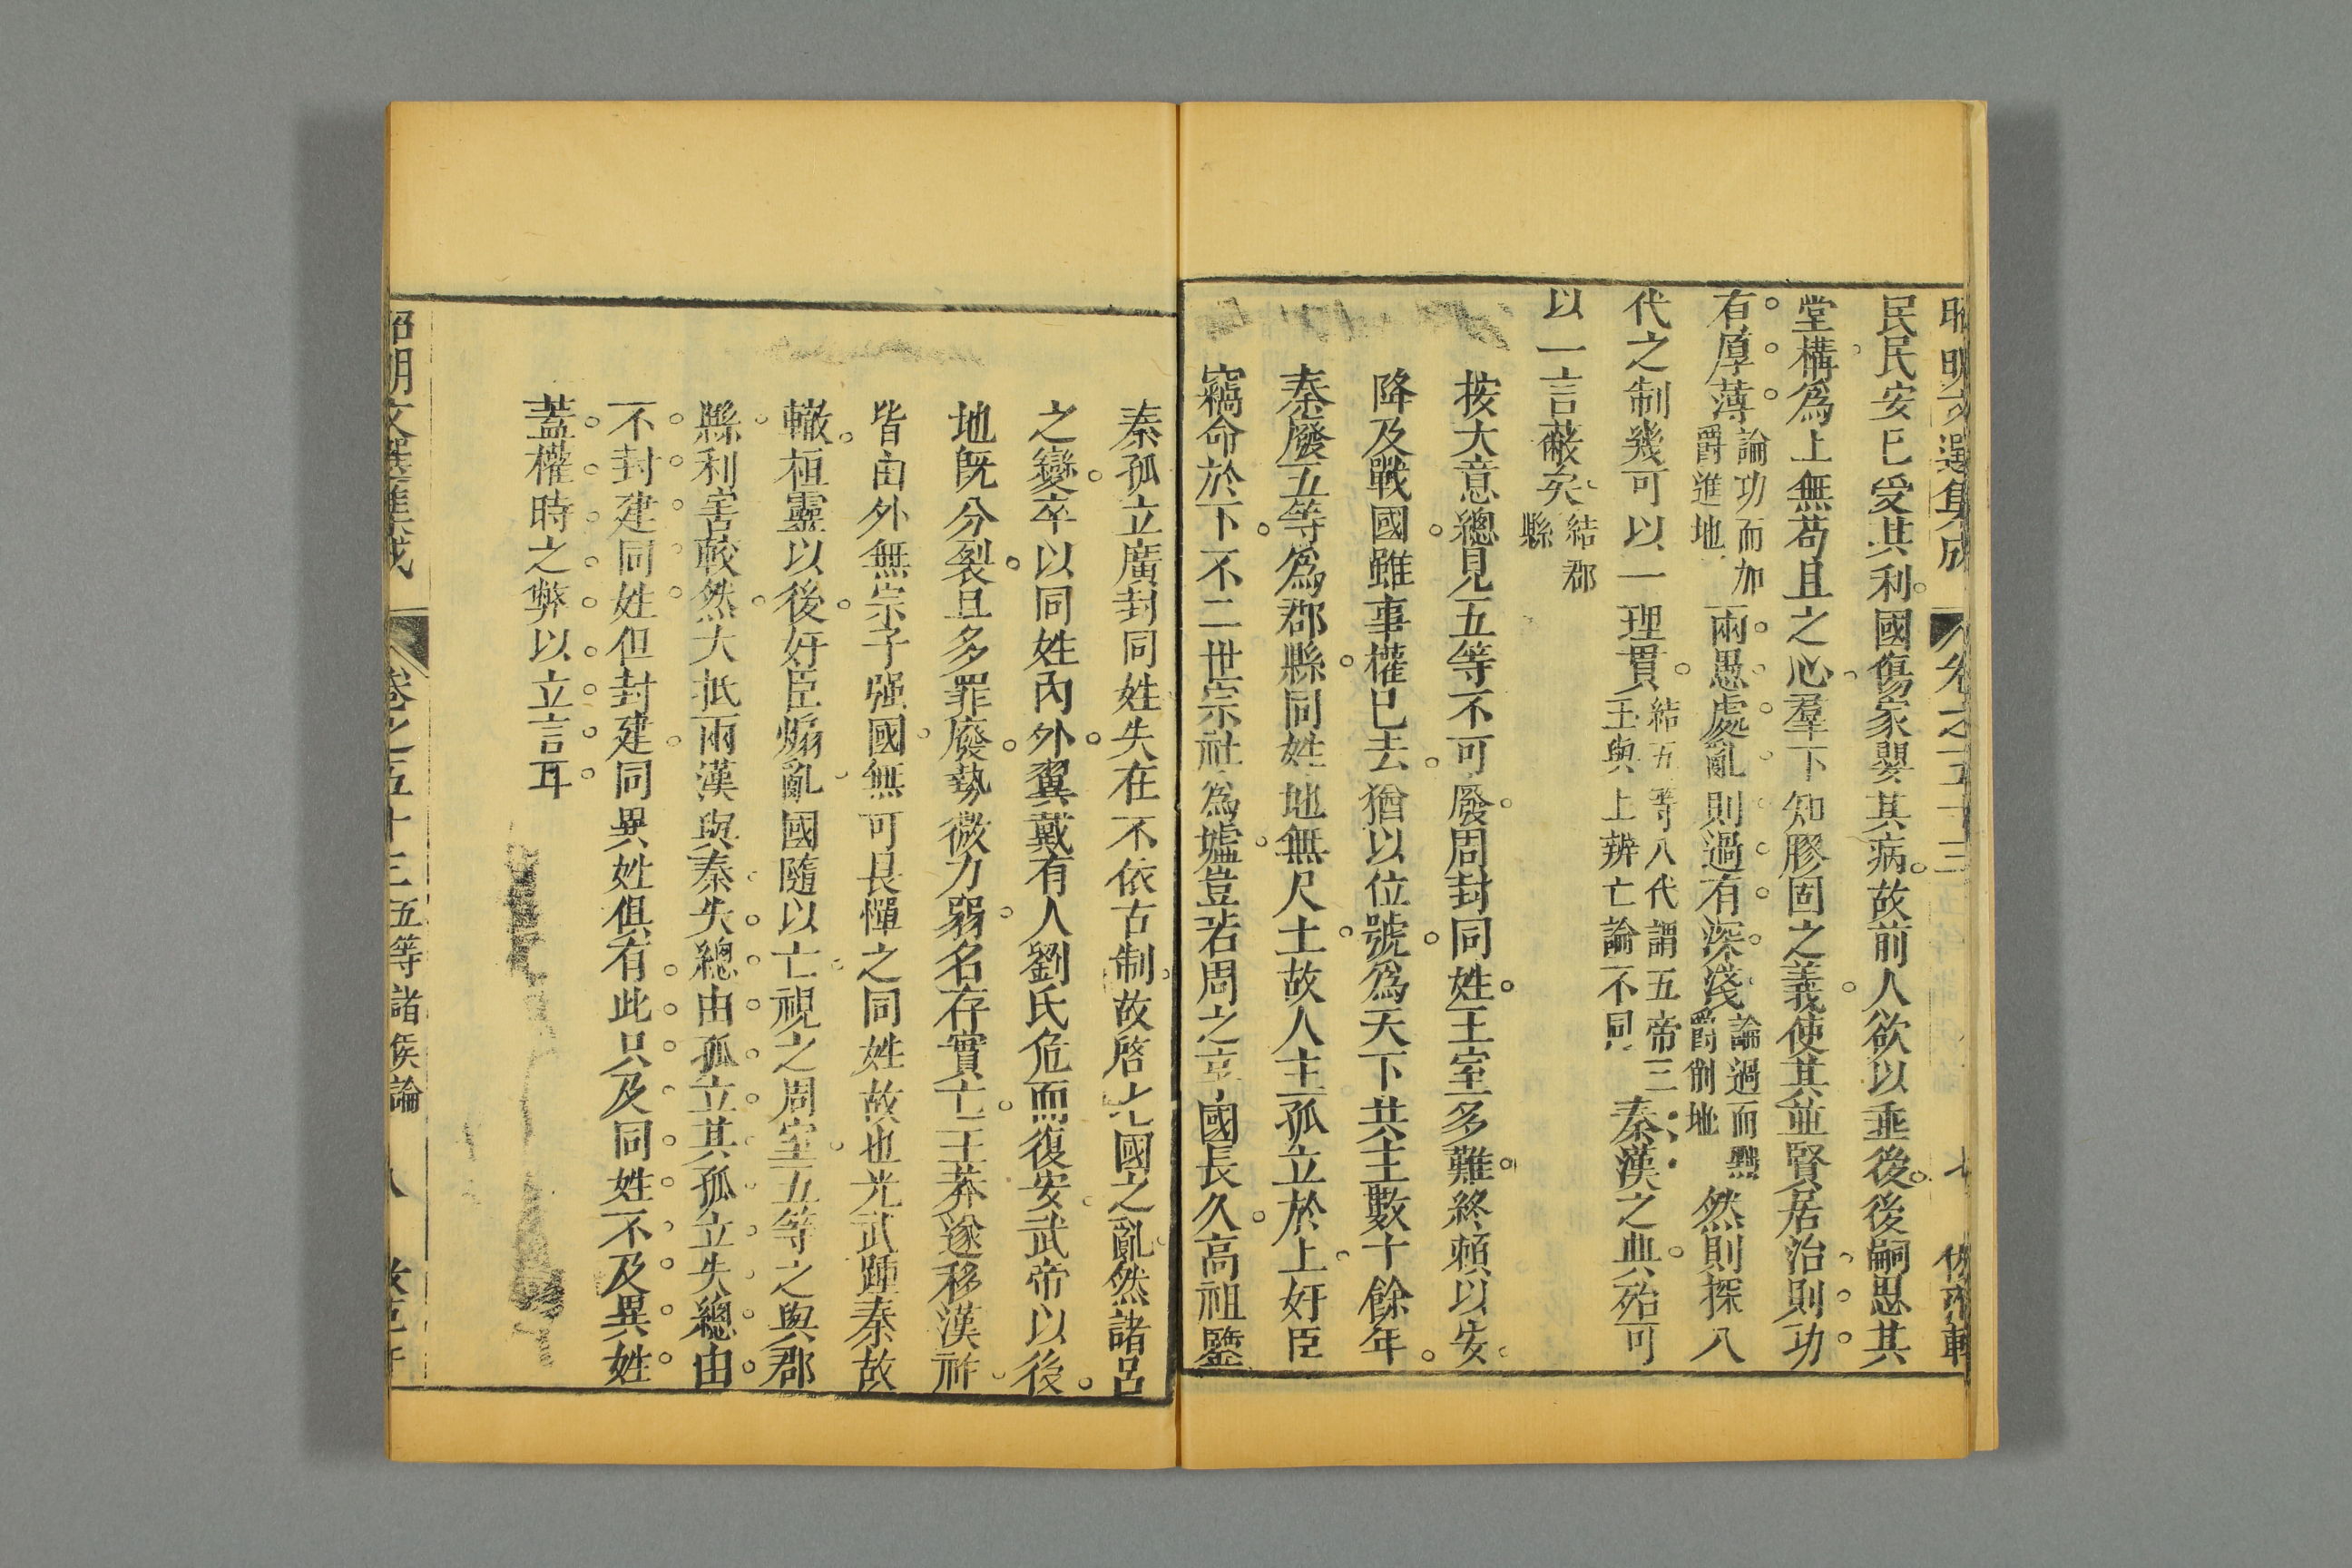 昭明文選集成 卷之五十三 七
民民安已受其利國傷家嬰其病故前人欲以垂後後嗣思其
堂構為上無苟且之心羣下知膠固之義使其並賢居治則功
有厚薄論功而加爵進地兩愚處亂則過有深淺論過而黜爵削地然則探八
代之制幾可以一理貫結五等八代謂五帝三王與上辨亡論不同秦漢之典殆可
以一言蔽矣結郡縣
按大意總見五等不可廢周封同姓王室多難終賴以安
降及戰國雖事權已去猶以位號為天下共主數十餘年
秦廢五等為郡縣同姓地無尺土故人主孤立於上奸臣
竊命於下不二世宗社為墟豈若周之享國長久高祖鑒
秦孤立廣封同姓失在不依古制故啓七國之亂然諸呂
之變卒以同姓內外翼戴有人劉氏危而復安武帝以後
地旣分裂且多罪廢勢微力弱名存實亡王莽遂移漢祚
皆由外無宗子強國無可畏憚之同姓故也光武踵秦故
轍桓靈以後奸臣煽亂國隨以亡視之周室五等之與郡
縣利害較然大抵兩漢與秦失總由孤立其孤立失總由
不封建同姓但封建同異姓俱有此只及同姓不及異姓
蓋權時之弊以立言耳
昭明文選集成 卷之五十三 五等諸侯論 八